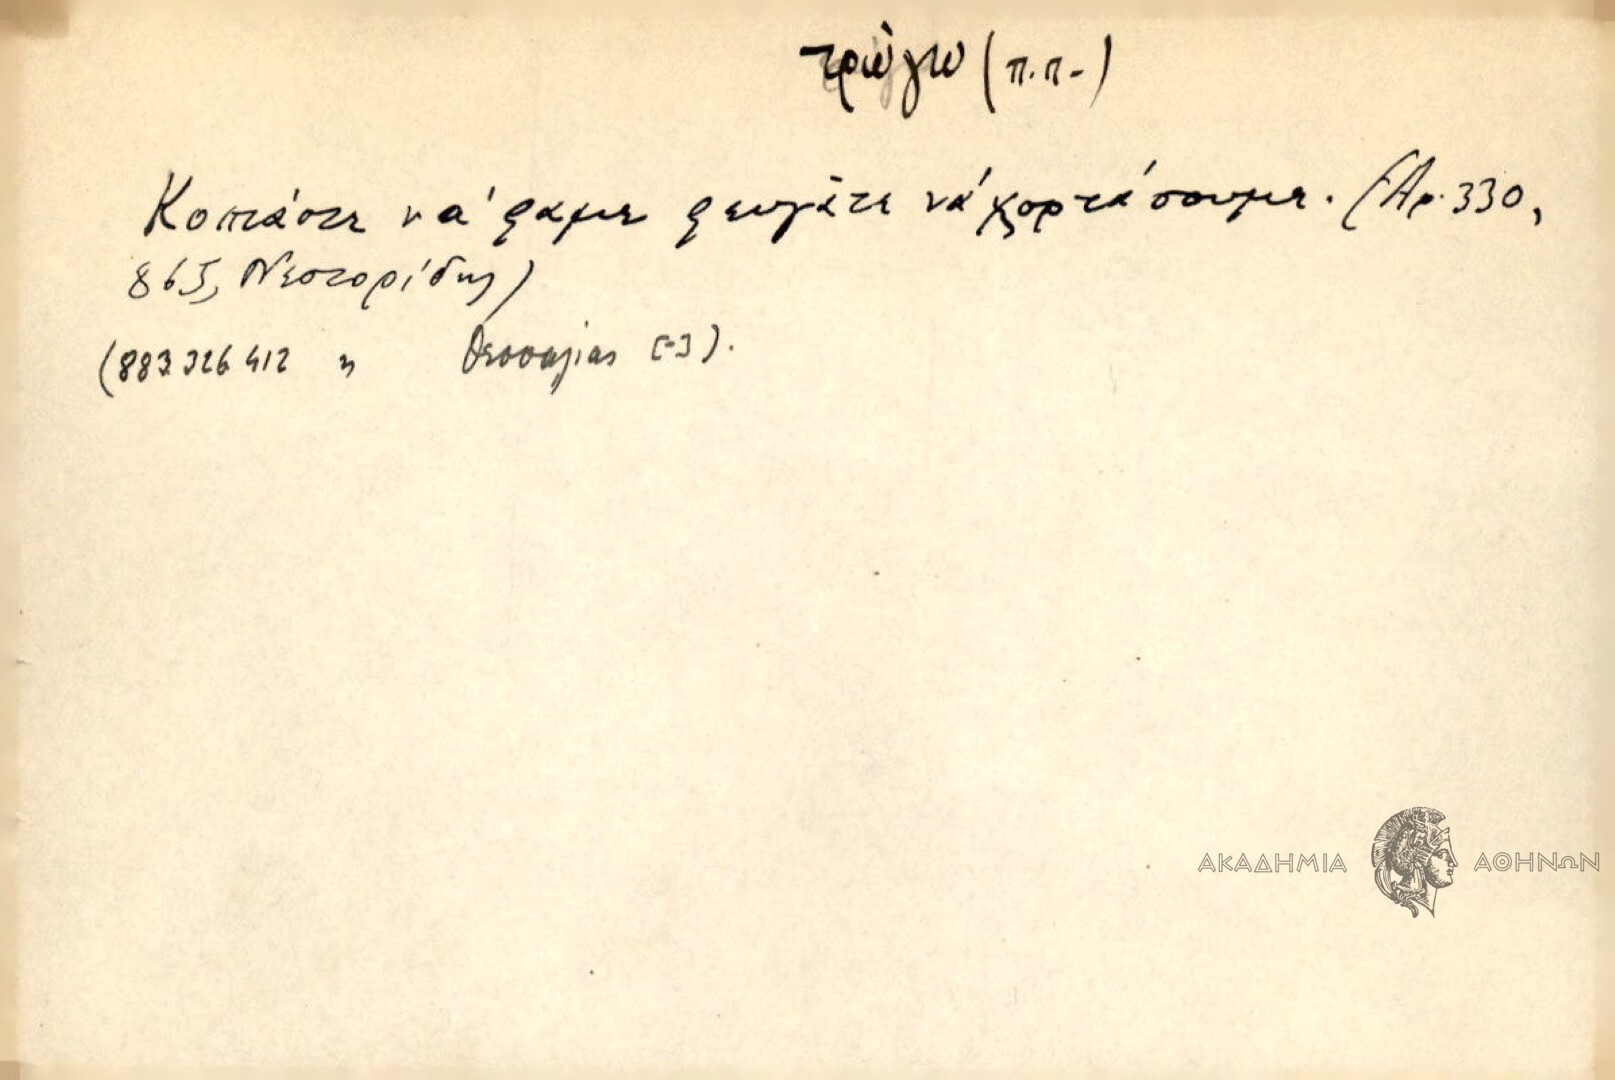 τρώγω (π.π.)
Κοπιάστε νά φᾶμε φευγᾶτε νά χορτάσουμε. (Ἀρ. 330,
865, Νεστορίδης)
(883.326.412 " Θεσσαλίας [-])
ΑΚΑΔΗΜΙΑ ΑΘΗΝΩΝ